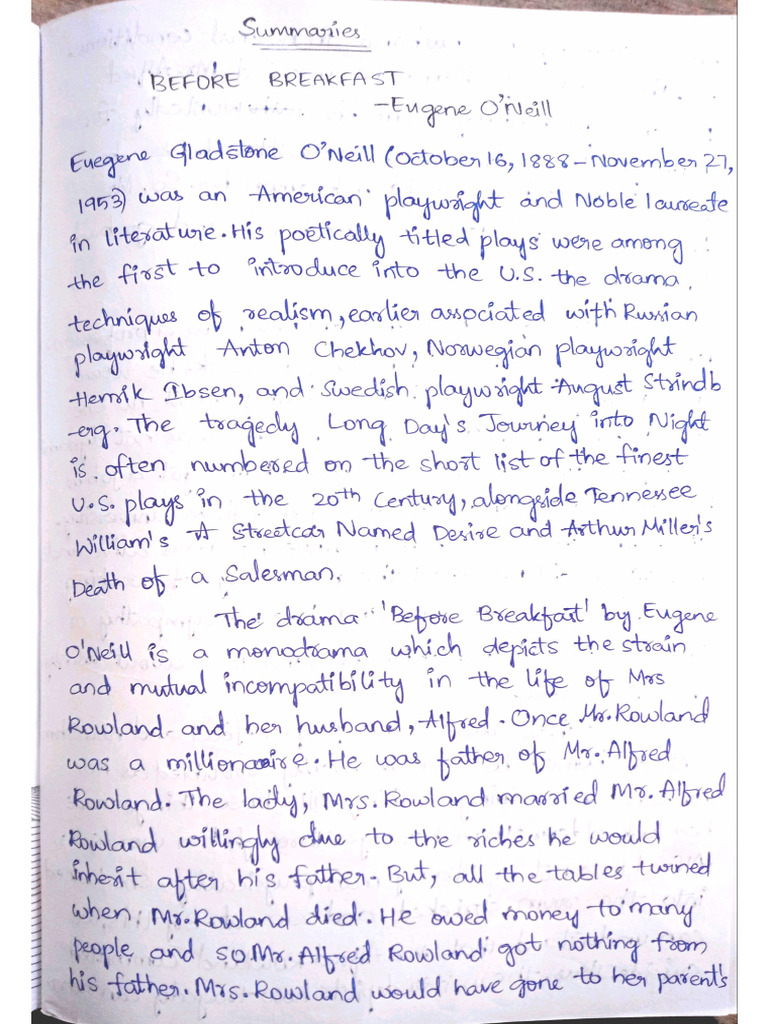 Summaries
BEFORE BREAKFAST
-Eugene O'Neill
Euegene Gladstone O'Neill (October 16, 1888 - November 27,
1953) was an American playwright and Noble laureate
in literature. His poetically titled plays were among
the first to introduce into the U.S. the drama
techniques of realism, earlier associated with Russian
playwright Anton Chekhov, Norwegian playwright
Henrik Ibsen, and Swedish playwright August Strindb
-erg. The tragedy Long Day's Journey into Night
is often numbered on the short list of the finest
U.S. plays in the 20th century, alongside Tennessee
William's A Streetcar Named Desire and Arthur Miller's
Death of a Salesman.
The drama 'Before Breakfast' by Eugene
O'Neill is a monodrama which depicts the strain
and mutual incompatibility in the life of Mrs
Rowland and her husband, Alfred. Once Mr. Rowland
was a millionaire. He was father of Mr. Alfred
Rowland. The lady, Mrs. Rowland married Mr. Alfred
Rowland willingly due to the riches he would
inherit after his father. But, all the tables turined
when Mr. Rowland died. He owed money to many
people and so Mr. Alfred Rowland got nothing from
his father. Mrs. Rowland would have gone to her parent's